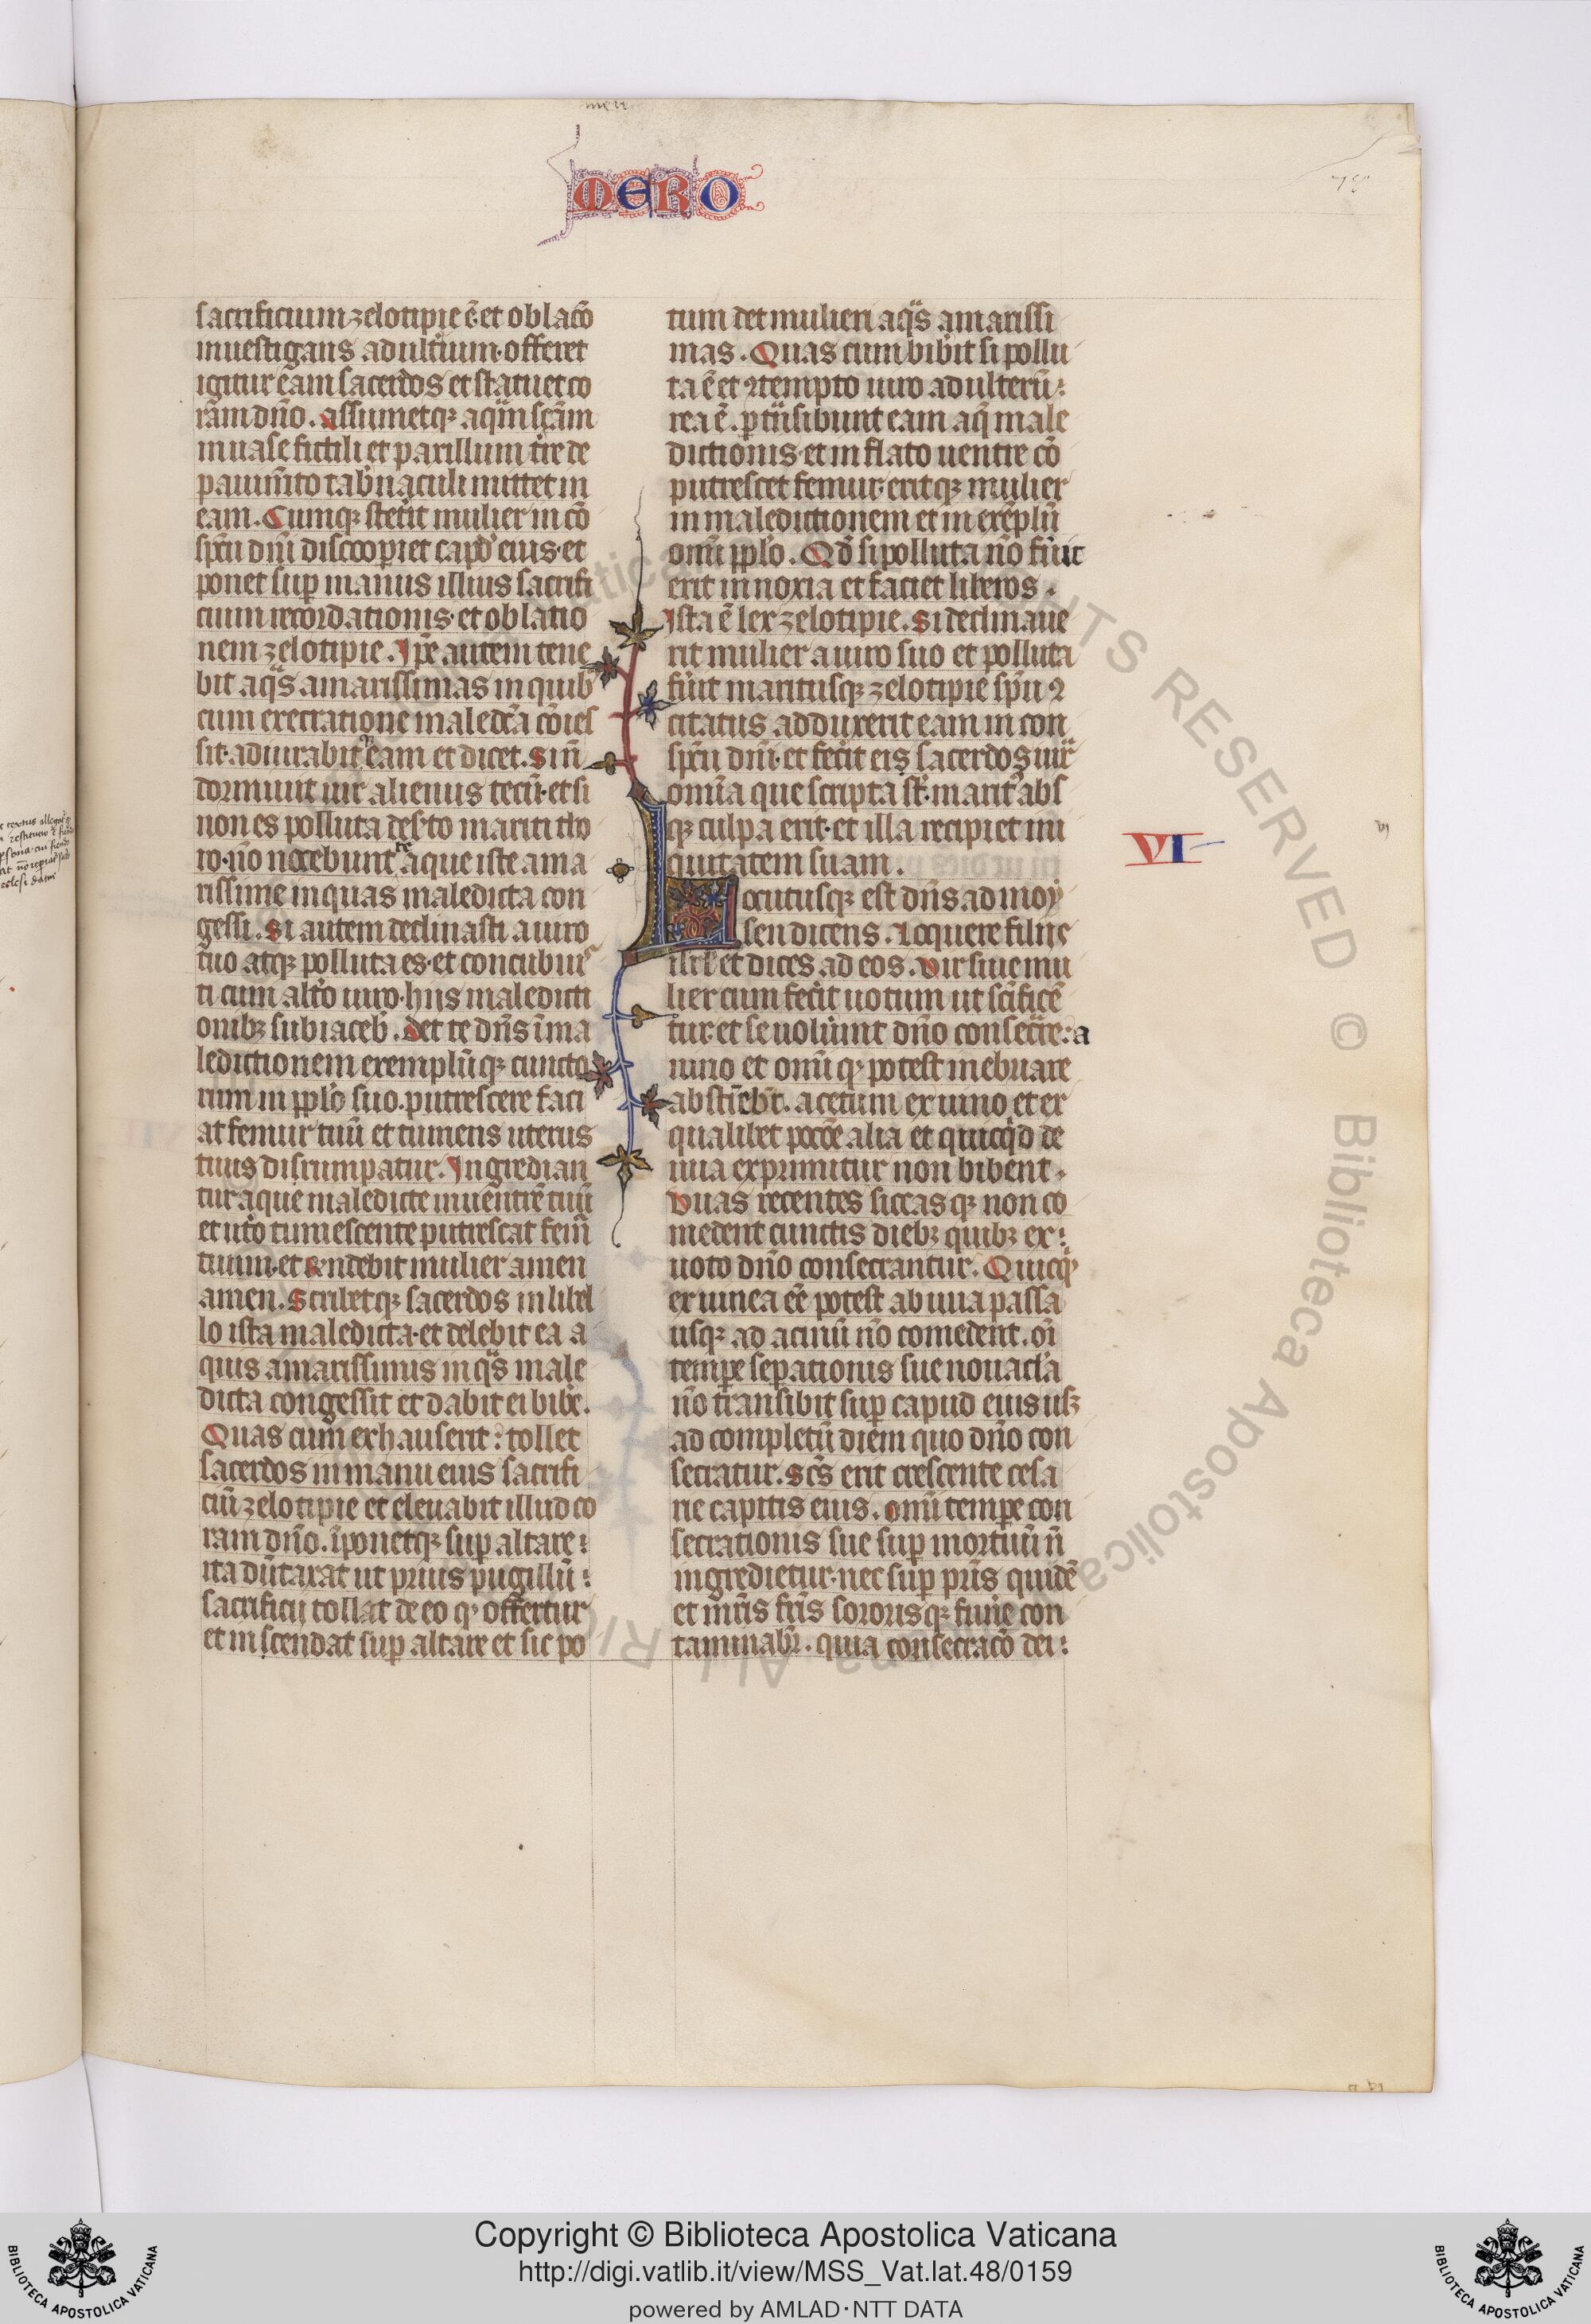 MERO
78
sacrificium zelotipie ē et oblacō
inuestigans adult'ium. offeret
igitur eam sacerdos et statuet co
ram dño. assumetqꝫ aquam scām
in uase fictili et paxillum t're de
pauim̄to tab'naculi mittet in
eam. Cumqꝫ stet'it mulier in cō
spcū dñi discoop̄iet capd' eius. et
ponet sup̄ manus illius sacrifi
cium recordationis. et oblatio
nem zelotipie. Ip̄e autem tene
bit aqᵃs amarissimas in quib'
cum execratione maledcā cōies
sit. adiurabit eam et dicet. Si ñ
dormiuit uir alienus tecū. et si
non es polluta des'to mariti tho
ro. nō nocebunt te aque iste ama
rissime in quas maledicta con
gessi. Si autem declinasti a uiro
tuo atqꝫ polluta es. et concubuis
ti cum alt'o uiro. hiis maledicti
onibꝫ subiaceb'. det te dñs ī ma
ledictionem exemplūqꝫ cuncto
rum in pplō suo. putrescere faci
at femur tuū et tumens uterus
tuus disrumpatur. Ingredian
tur aque maledicte in uentrē tuū
et ut'o tumescente putrescat fem̄
tuum. et rn̄debit mulier amen
amen. Scribetqꝫ sacerdos in libel
lo ista maledicta. et delebit ea a
quis amarissimis in qᵃs male
dicta congessit et dabit ei bib'e.
Quas cum exhauserit: tollet
sacerdos in manu eius sacrifi
ciū zelotipie et eleuabit illud co
ram dño. īponetqꝫ sup̄ altare:
ita dūtaxat ut prius pugillū:
sacrificij tollat de eo qꝫ offertur
et incendat sup̄ altare et sic po
tum det mulieri aqᵃs amarissi
mas. Quas cum bib'it si pollu
ta ē et ꝯtempto uiro adulterū:
rea ē. p̄tn̄sibunt eam aq̄ male
dictionis. et inflato uentre cō
putrescet femur. eritqꝫ mulier
in maledictionem et in exēplū
omī pplō. Qd̄ si polluta nō fuīt
erit innoxia et faciet liberos.
Ista ē lex zelotipie. Si declinaue
rit mulier a uiro suo et polluta
fūit maritusqꝫ zelotipie spū ꝯ
citatus adduxerit eam in con
spcū dñi. et fec'it eis sacerdos iux̄
omīa que scripta st̄. marit' abs
qꝫ culpa erit. et illa recipiet ini
quitatem suam.
VI
Locutusqꝫ est dñs ad moy
sen dicens. Loquere filiis
isrl' et dices ad eos. Vir siue mu
lier cum fec'it uotum ut scīficē
tur. et se uolūint dño consec̄re: a
uino et omī qꝫ potest inebriare
abstīeb'r. acetum ex uino et ex
qualibet poc̄oe alia et quicq̄d de
uua exprimitur non bibent.
Vuas recentes siccasqꝫ non co
medent cunctis diebꝫ quibꝫ ex:
uoto dño consecrantur. Quicqꝫ
ex uinea eē potest ab uua passa
usqꝫ ad acinū nō comedent. oī
temp̄e sep̄ationis sue nouacl'a
nō transibit sup̄ capud eius usꝫ
ad completū diem quo dño con
secratur. Scs̄ erit crescente cesa
rie capitis eius. omī temp̄e con
secrationis sue sup̄ mortuū ñ
ingredietur. nec sup̄ pr̄is quidē
et mr̄is fr̄is sororisqꝫ funīe con
taminab'r. quia consecracō dei:
Copyright © Biblioteca Apostolica Vaticana
http://digi.vatlib.it/view/MSS_Vat.lat.48/0159
powered by AMLAD·NTT DATA
BIBLIOTECA APOSTOLICA VATICANA
BIBLIOTECA APOSTOLICA VATICANA